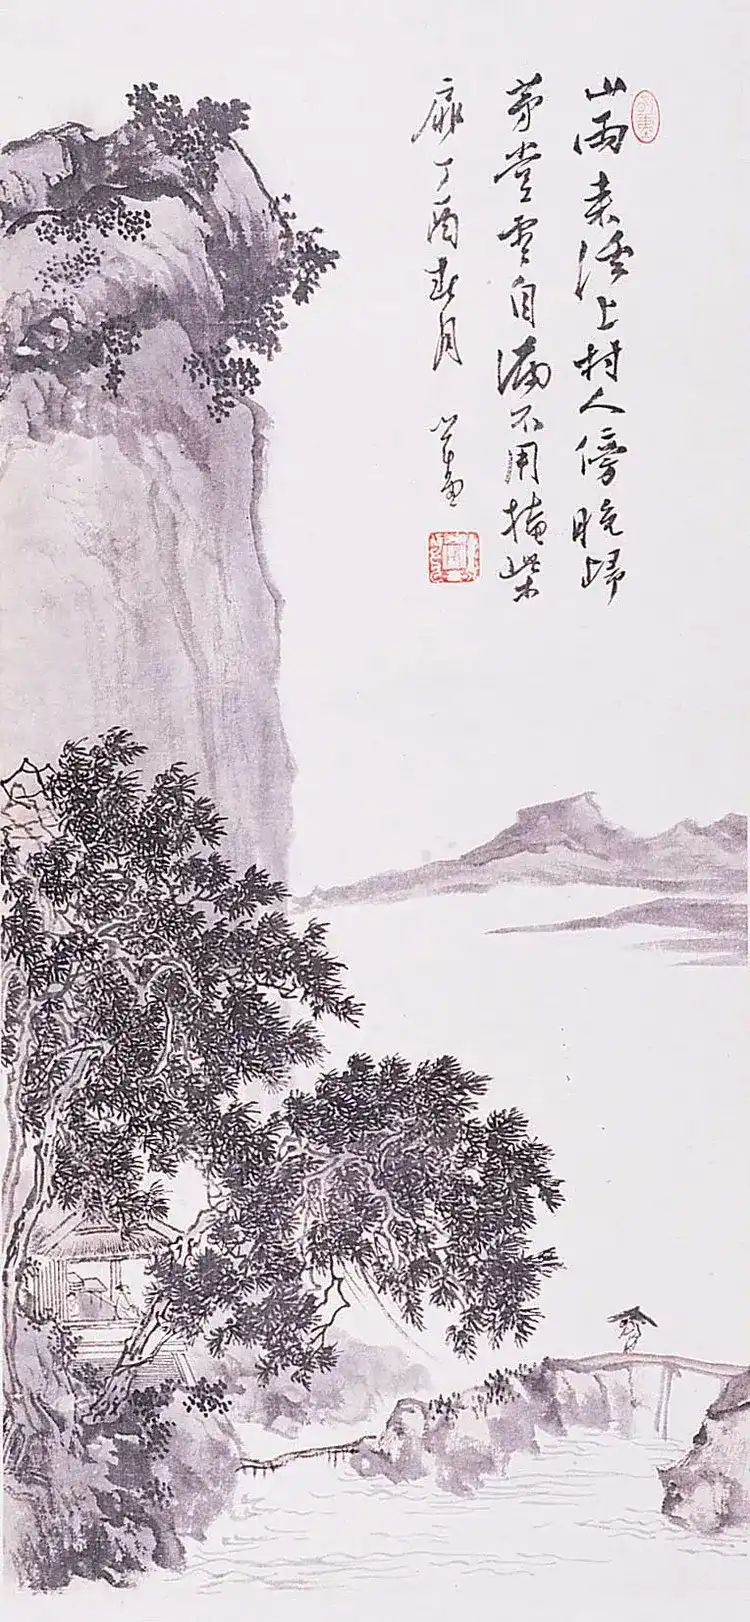 山雨来溪上村人傍晚歸
茅堂雲自滿不用掩柴
扉丁酉春月 心畬